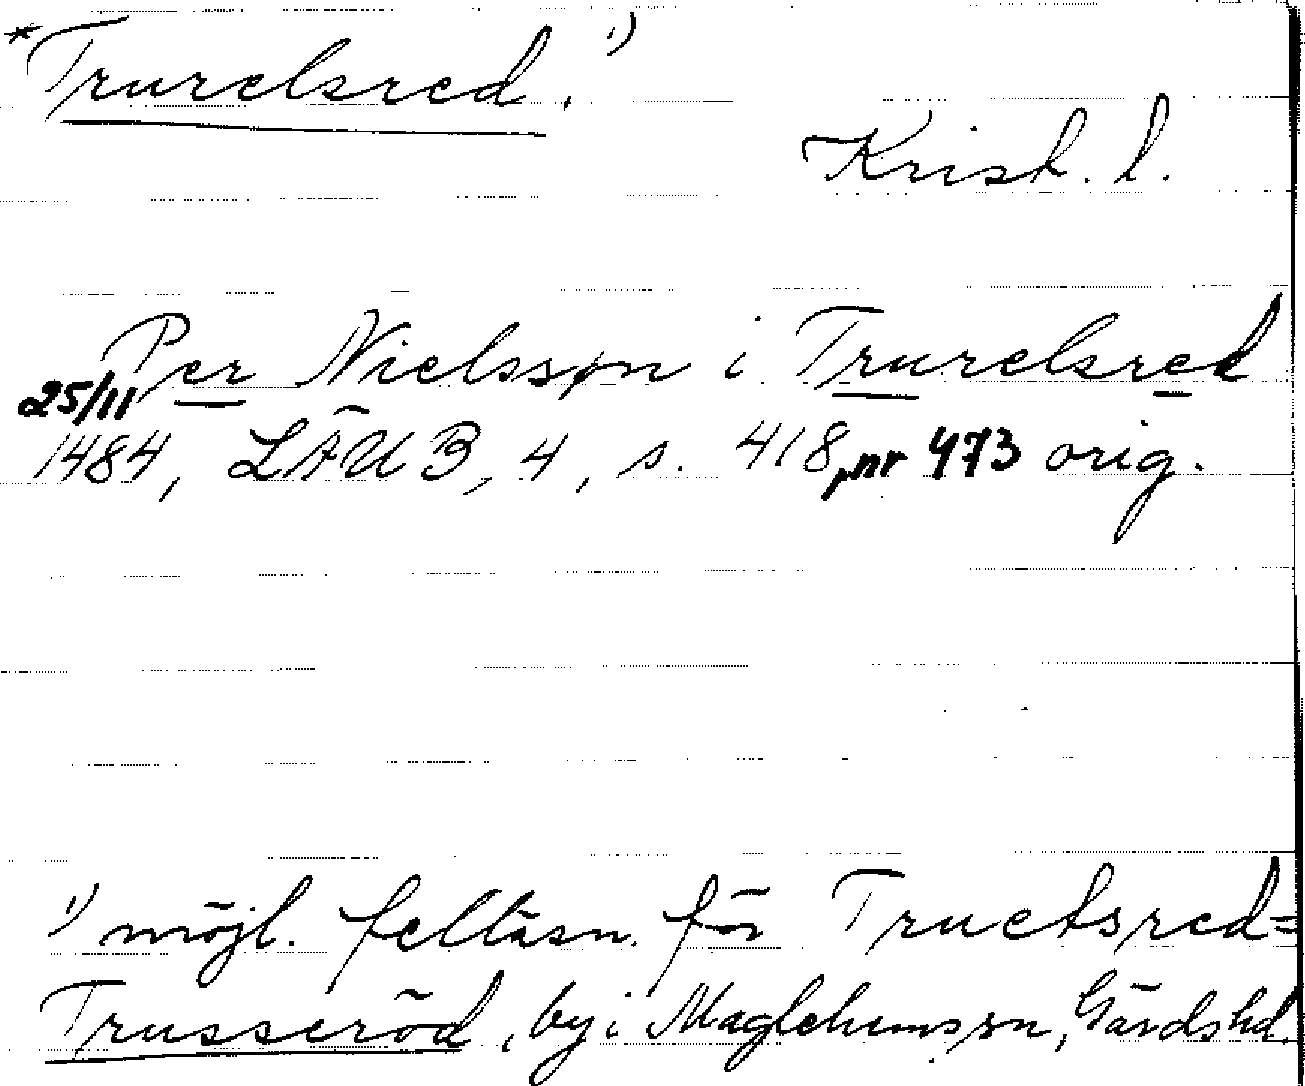 *Trurelsred. 1)
Krist. l.
Per Nielsson i Trurelsred
25/11
1484, LÄUB, 4, s. 418, nr 473 orig.
1) möjl. felläsn. för Truetsred=
Trusseröd, by i Maglehems sn, Gärds hd.